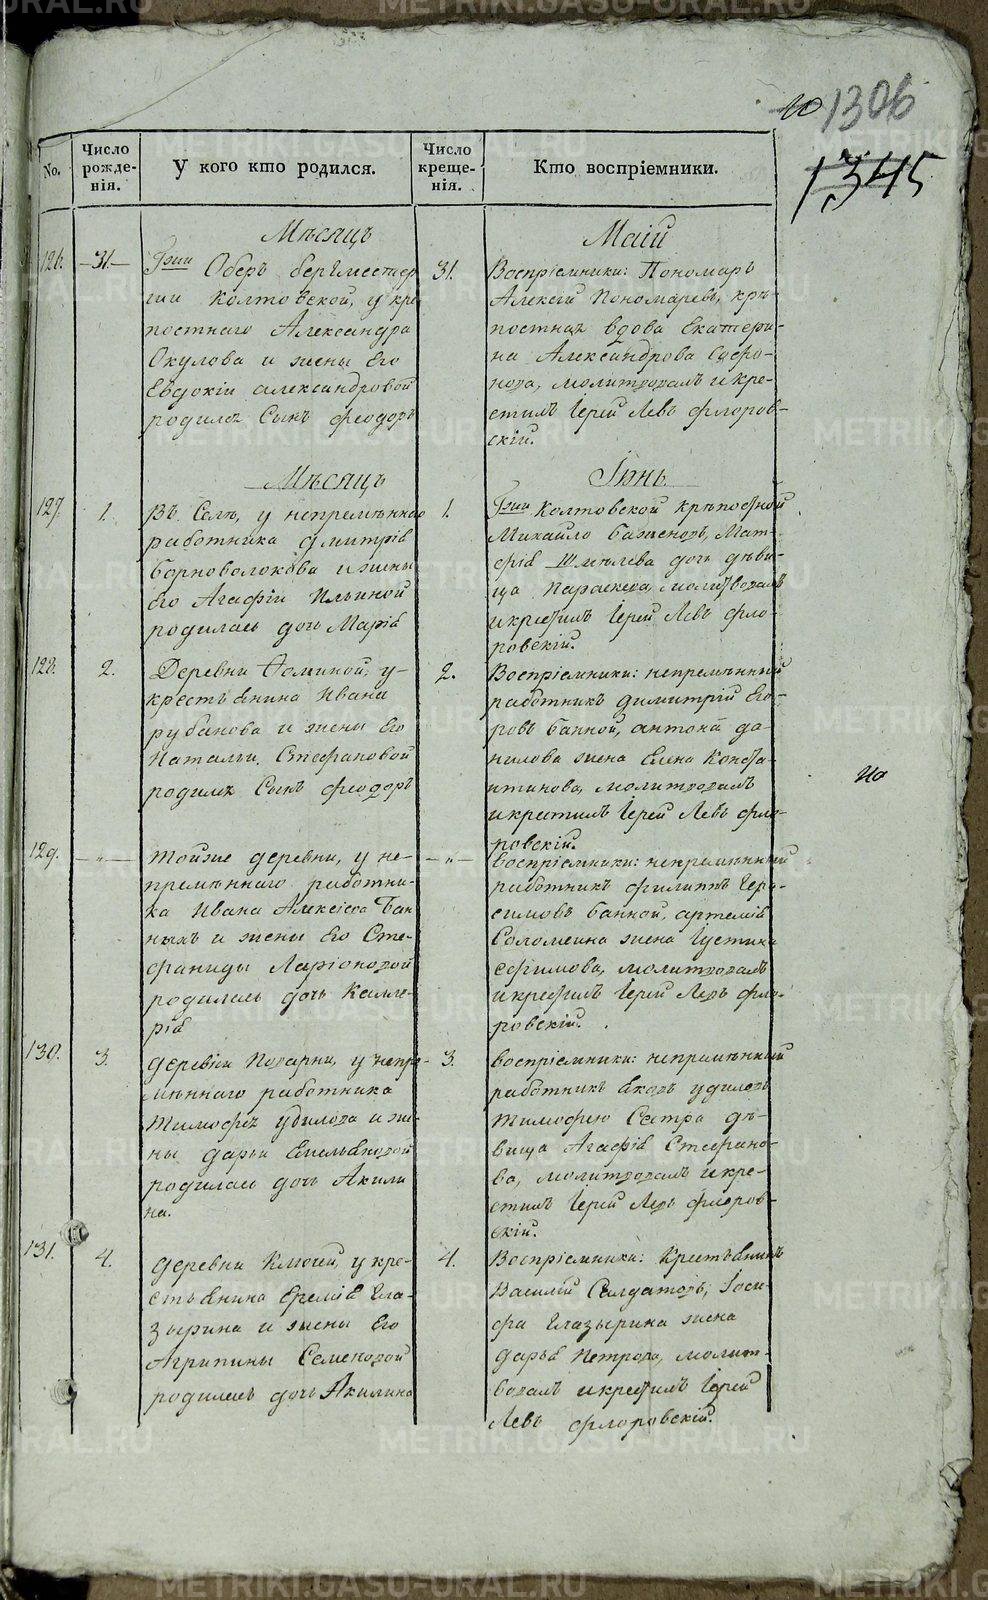 1306
1345
No.
Число рожде-нія.
У кого кто родился.
Число креще-нія.
Кто воспріемники.
Мѣсяцъ
Маій
126.
31.
Г҃жи Оберъ бергмейстер
ши Колтовской, у кре
постнаго Александра
Окулова и жены Его
Евдокіи александровой
родился Сынъ феодоръ
31.
Воспріемники: Пономарь
Алексій Пономаревъ, крѣ-
постная вдова Екатери-
на Александрова Софро-
нова, молитвовалъ и кре-
стилъ Іерей Левъ флоров-
скій.
Мѣсяцъ
Іюнь
127.
1.
Въ Селѣ, у непремѣннаго
работника дмитрія
Борноволокова и жены
Его Агафіи Ильиной
родилась дочь Марія
1.
Г҃жи Колтовской крѣпостной
Михайло Баженовъ, Мат-
фія Шмѣлева дочь дѣви-
ца Параскева, молитвовалъ
и крестилъ Іерей Левъ фло-
ровскій.
128.
2.
Деревни Фоминой, у
крестьянина Ивана
рубанова и жены Его
Натальи Стефановой
родился Сынъ феодоръ
2.
Воспріемники: непремѣнный
работникъ димитрій Его-
ровъ банной, антона да-
нилова жена Елена Конста-
нтинова, молитвовалъ
и крестилъ Іерей Левъ фло-
ровскій.
но
129.
— „ —
тойже деревни, у не-
премѣннаго работни-
ка Ивана Алексіева Бан
ныхъ и жены Его Сте-
фаниды Ларіоновой
родилась дочь Калле-
рія
— „ —
воспріемники: непремѣнный
работникъ филиппъ Гера-
симовъ банной, артемія
Соломеина жена Іустина
Ефимова, молитвовалъ
и крестилъ Іерей Левъ фло-
ровскій.
130.
3.
деревни Токарни, у непре-
мѣннаго работника
тимофея Удилова и же-
ны дарьи Емельяновой
родилась дочь Акили
на.
3.
воспріемники: непремѣнный
работникъ Яковъ удиловъ
тимофею Сестра дѣ-
вица Агафія Стефано-
ва, молитвовалъ и кре-
стилъ Іерей Левъ флоров-
скій.
131.
4.
деревни Ключей, у кре-
стьянина Еремія Гла-
зырина и жены Его
Агрипины Семеновой
родилась дочь Акилина
4.
Воспріемники: Крестьянинъ
Василій Салдатовъ, Іоси-
фа Глазырина жена
дарья Петрова, молит-
вовалъ и крестилъ Іерей
Левъ флоровскій.
METRIKI.GASO-URAL.RU